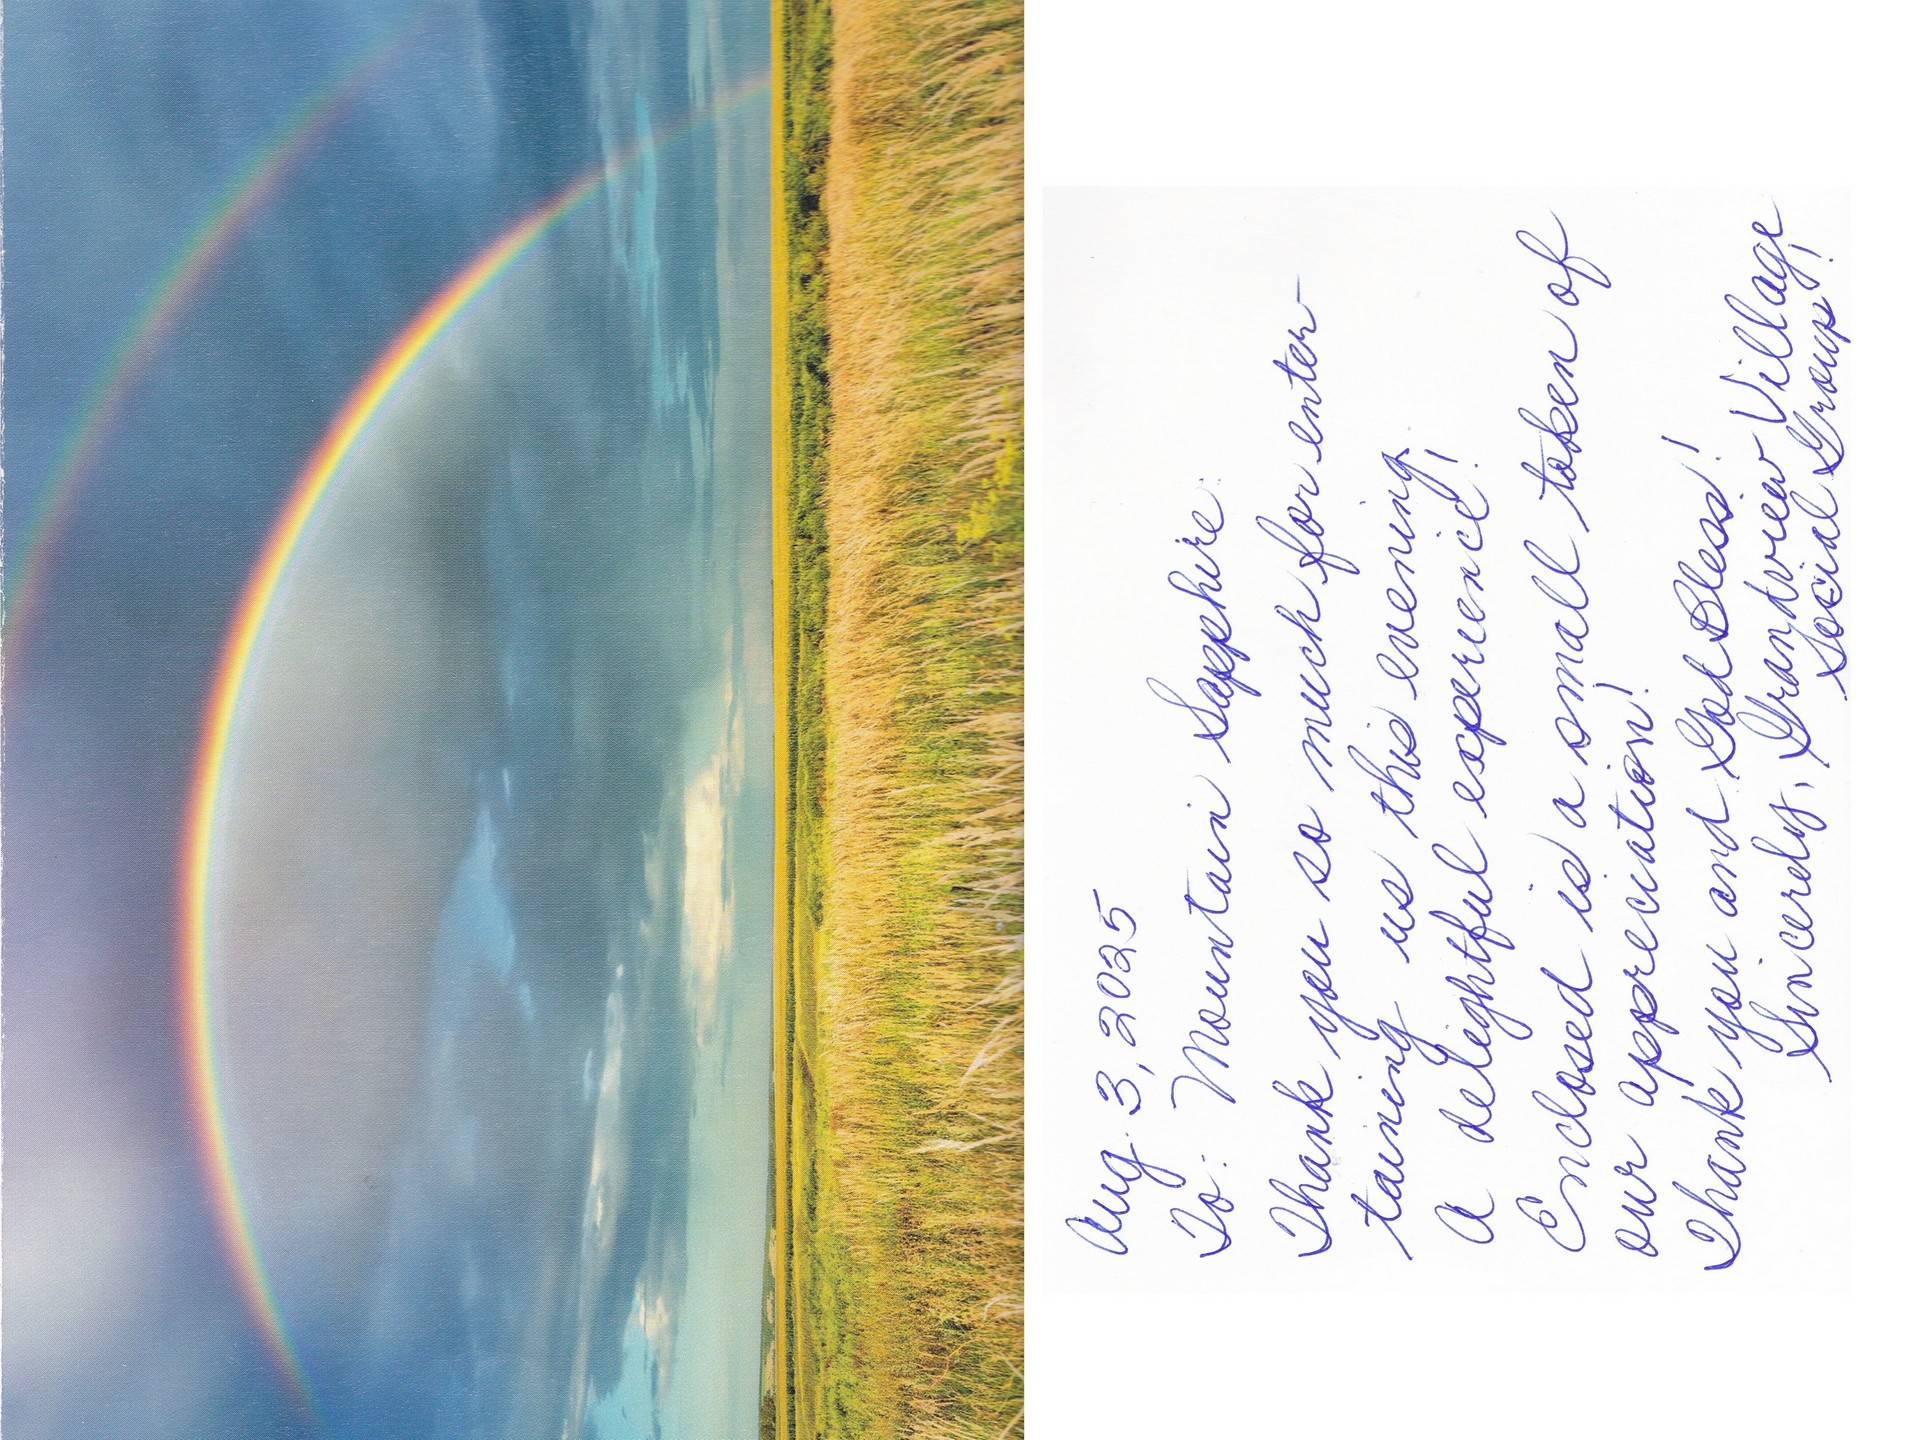 Aug. 3, 2025
To: Mountain Sapphire:
Thank you so much for enter
taining us this evening.
A delightful experience!
Enclosed is a small token of
our appreciation!
Thank you and God Bless!
Sincerely, Grandview Village
Social Group!